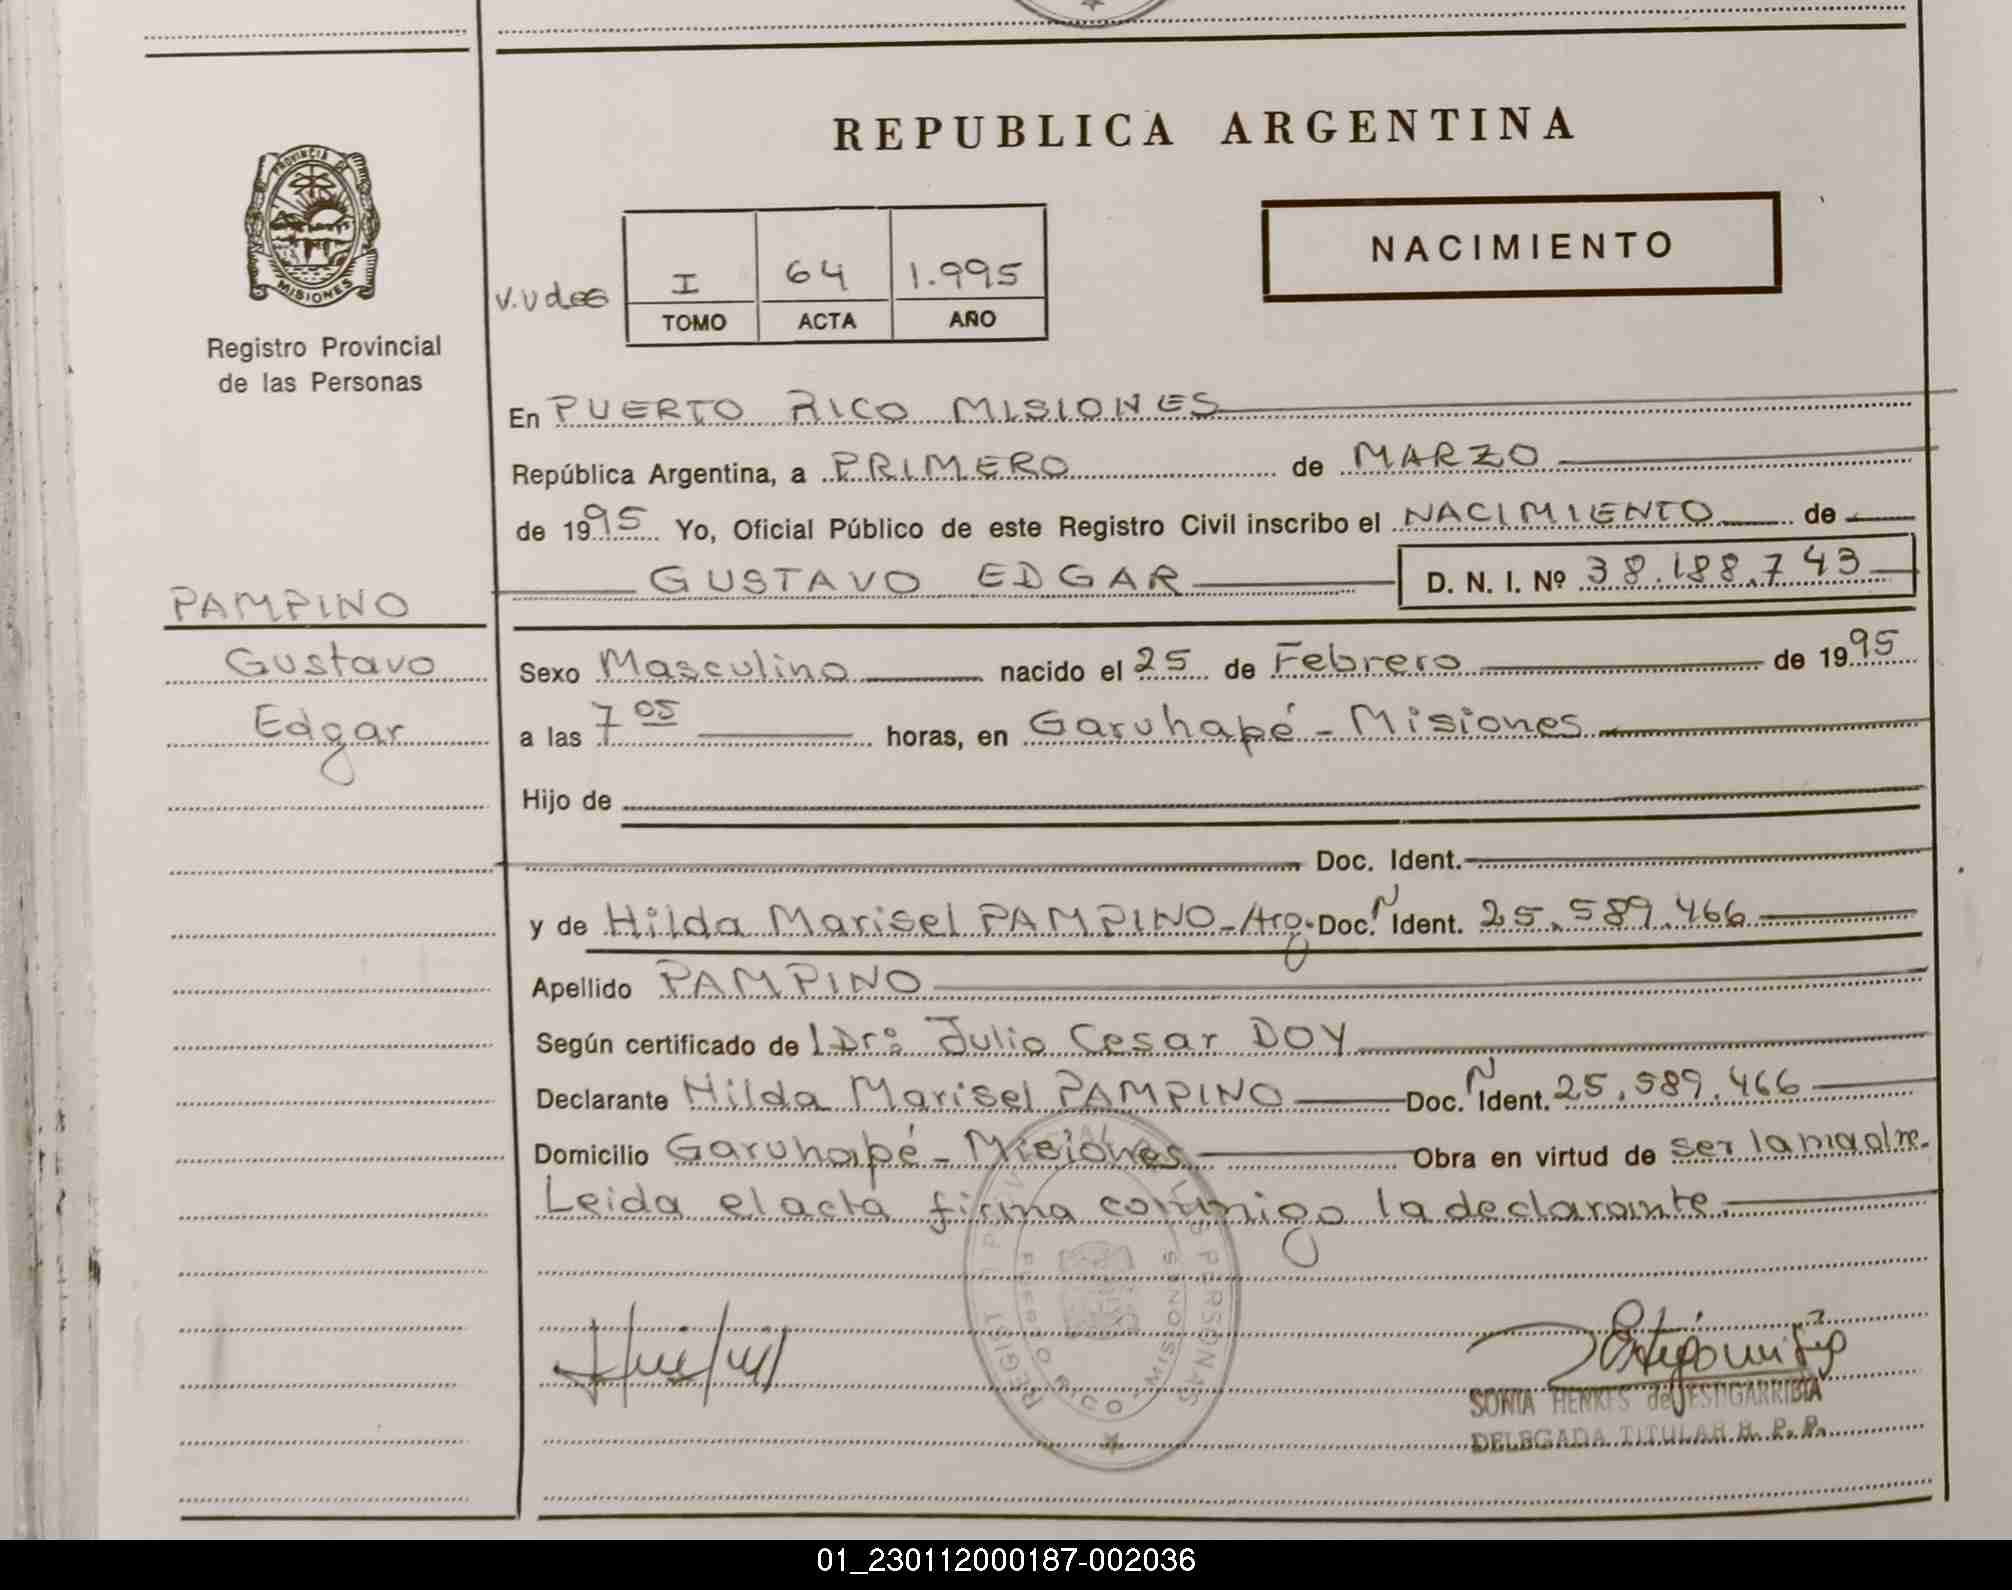 REPUBLICA ARGENTINA
PROVINCIA DE
MISIONES
Registro Provincial
de las Personas
NACIMIENTO
I 64 1.995
TOMO ACTA AÑO
En PUERTO RICO MISIONES
República Argentina, a PRIMERO de MARZO
de 1995 Yo, Oficial Público de este Registro Civil inscribo el NACIMIENTO de
GUSTAVO EDGAR D. N. I. Nº 38.188.743
PAMPINO
Gustavo
Edgar
Sexo Masculino nacido el 25 de Febrero de 1995
a las 7 05 horas, en Garuhapé - Misiones
Hijo de
Doc. Ident.
y de Hilda Marisel PAMPINO - Arg. Doc. N Ident. 25.589.466
Apellido PAMPINO
Según certificado de l Dr: Julio Cesar DOY
Declarante Hilda Marisel PAMPINO Doc. N Ident. 25.589.466
Domicilio Garuhapé - Misiones Obra en virtud de ser la madre.
Leida el acta firma conmigo la declarante.
PUERTO RICO - MISIONES
SONIA HENKES de ESTIGARRIBIA
DELEGADA TITULAR R. P. P.
01_230112000187-002036